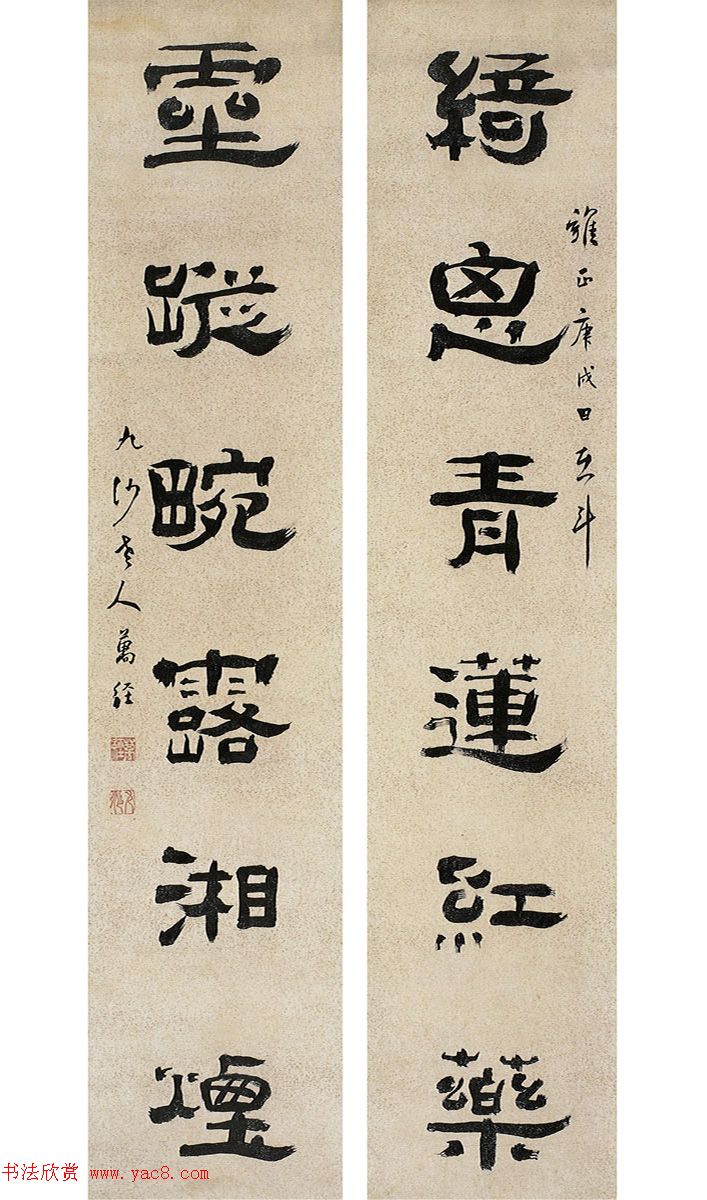 綺思青蓮紅藥
雍正庚戌日在斗
靈蹤畹露湘煙
九沙老人萬經
书法欣赏 www.yac8.com